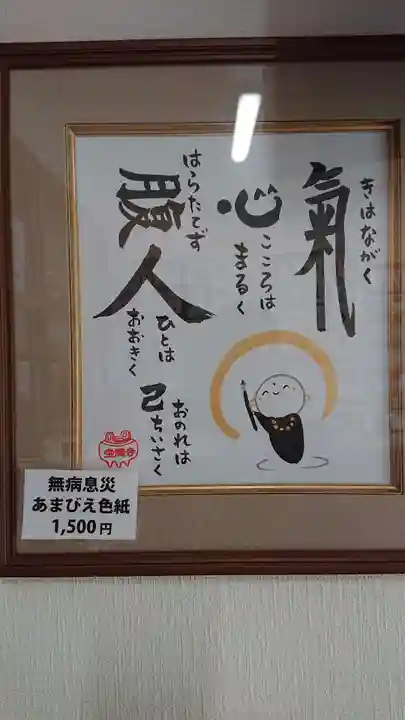 氣
きはながく
心
こころは
まるく
腹
はらたてず
人
ひとは
おおきく
己
おのれは
ちいさく
無病息災
あまびえ色紙
1,500円